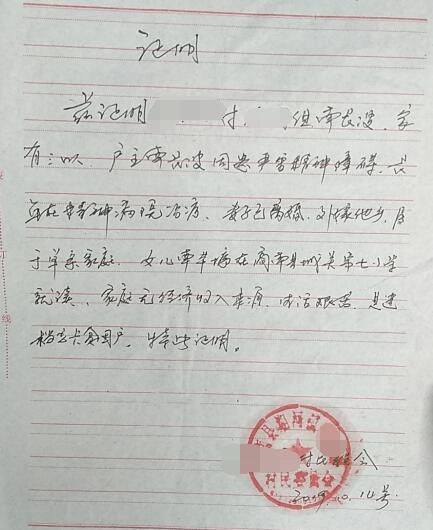 证明
兹证明 村 组
有三口人，户主 因患严重精神障碍，长
年在精神病院治疗、妻子已离婚，改嫁他乡，属
于单亲家庭。女儿 在商南县城关第七小学
就读，家庭无经济收入来源，生活艰苦，是建
档立卡贫困户，特此证明。
村民委员会
村民委员会
10.14号